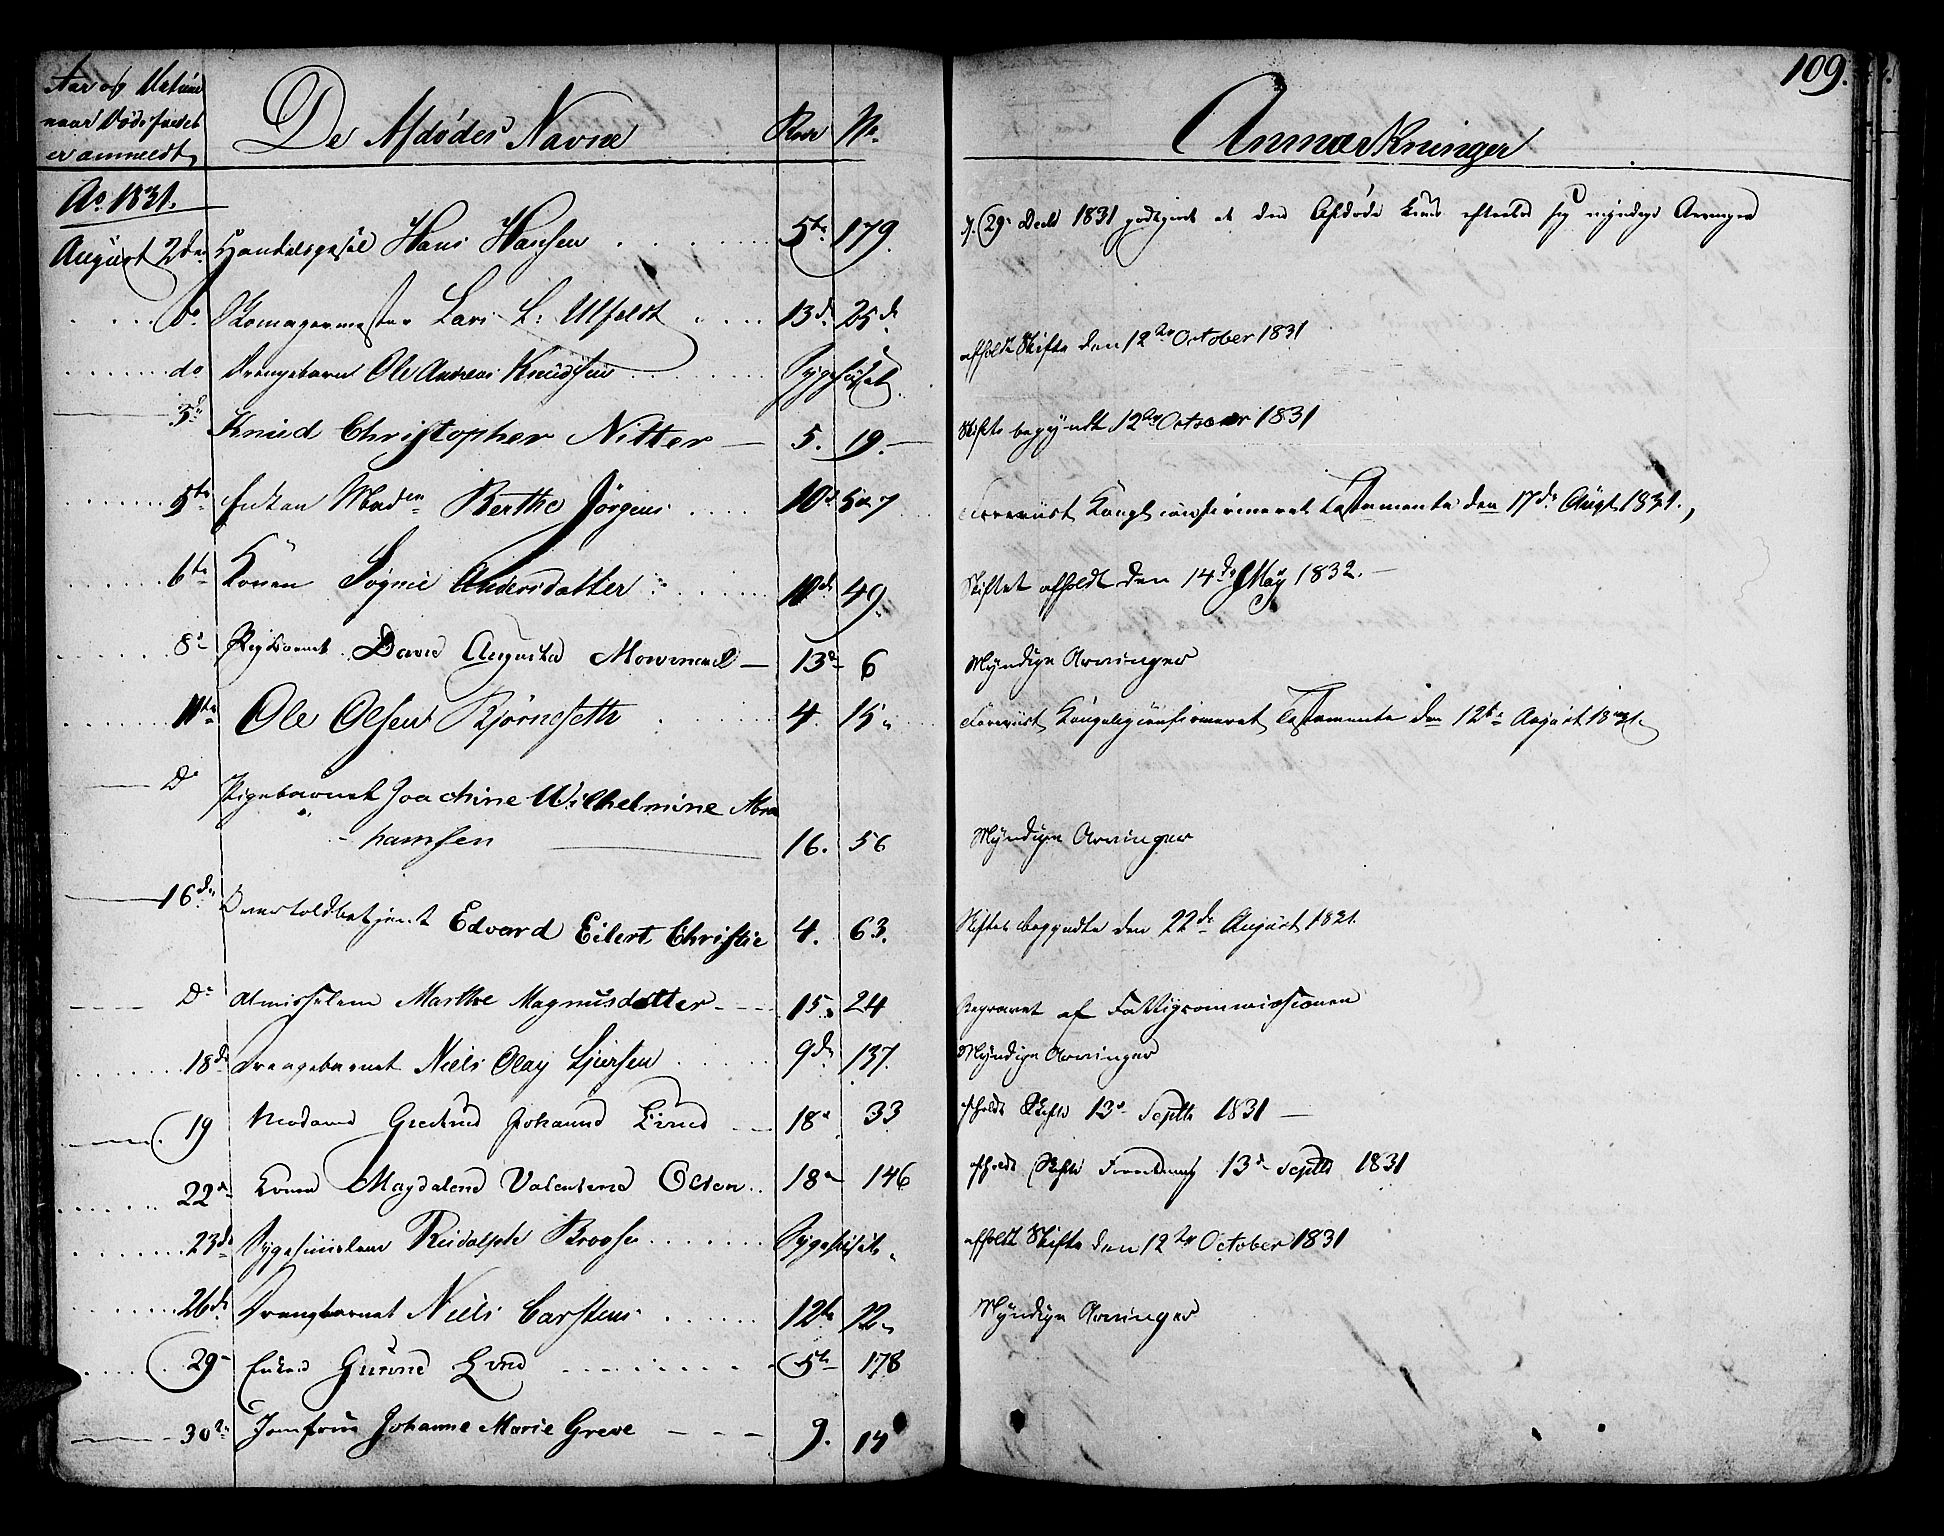 109.
Aar og Datum
naar Dødsfaldet
er anmeldt
De Afdødes Navne
Rode
No.
Anmærkninger
Ao. 1831.
August 2den Handelsgesel Hans Hansen 5te 179. d. 29 Decb 1831 godtgjort at den Afdøde kuns efterlod sig myndige Arvinger
do Skomagermester Lars L. Ulfeldt 13de 25de
afholdt Skifte den 12te October 1831
do Drengebarn Ole Andreas Knudsen Sygehuset
3de Knud Christopher Nitter 5. 19. Skifte begyndt 12te October 1831
5te Enken Madm Berthe Jørgens 10de 5 Foreviist Kongl confirmeret Testamente den 17de Augt 1831.
6te Konen Søgnie Andersdatter 10de 49. Skiftet afholdt den 14de May 1832.
8de Pigebarnet David Augusta 13de 6 Myndige Arvinger
11te Ole Olsen Bjørneseth 4. 15 Foreviist Kongelig confirmeret Testamente den 12te August 1831.
Do Pigebarnet Joachine Wilhelmine Abra
hamsen 16. 56 Myndige Arvinger
16de Overtoldbetjent Edvard Eilert Christie 4. 63. Skiftet begyndte den 22de August 1831.
Do Almisselem Marthe Magnusdatter 15. 24 Begravet af Fattigcommissionen
18de Drengebarnet Niels Olay 9de 137. Myndige Arvinger
19 Madame Giertrud Johanne Lund 18de 33 afholdt Skifte 13de Septb 1831
22de Konen Magdalena Valentine Olsen 18de 146 afholdt Skifte 13de Septb 1831
23de Sygehuuslem Rudolph Sygehuset afholdt Skifte den 12te October 1831
26de Drengebarnet Niels Carstens 12te 12 Myndige Arvinger
29de Enken Gurine Lund 5te 178
30te Jomfrue Johanne Marie Greve 9. 14